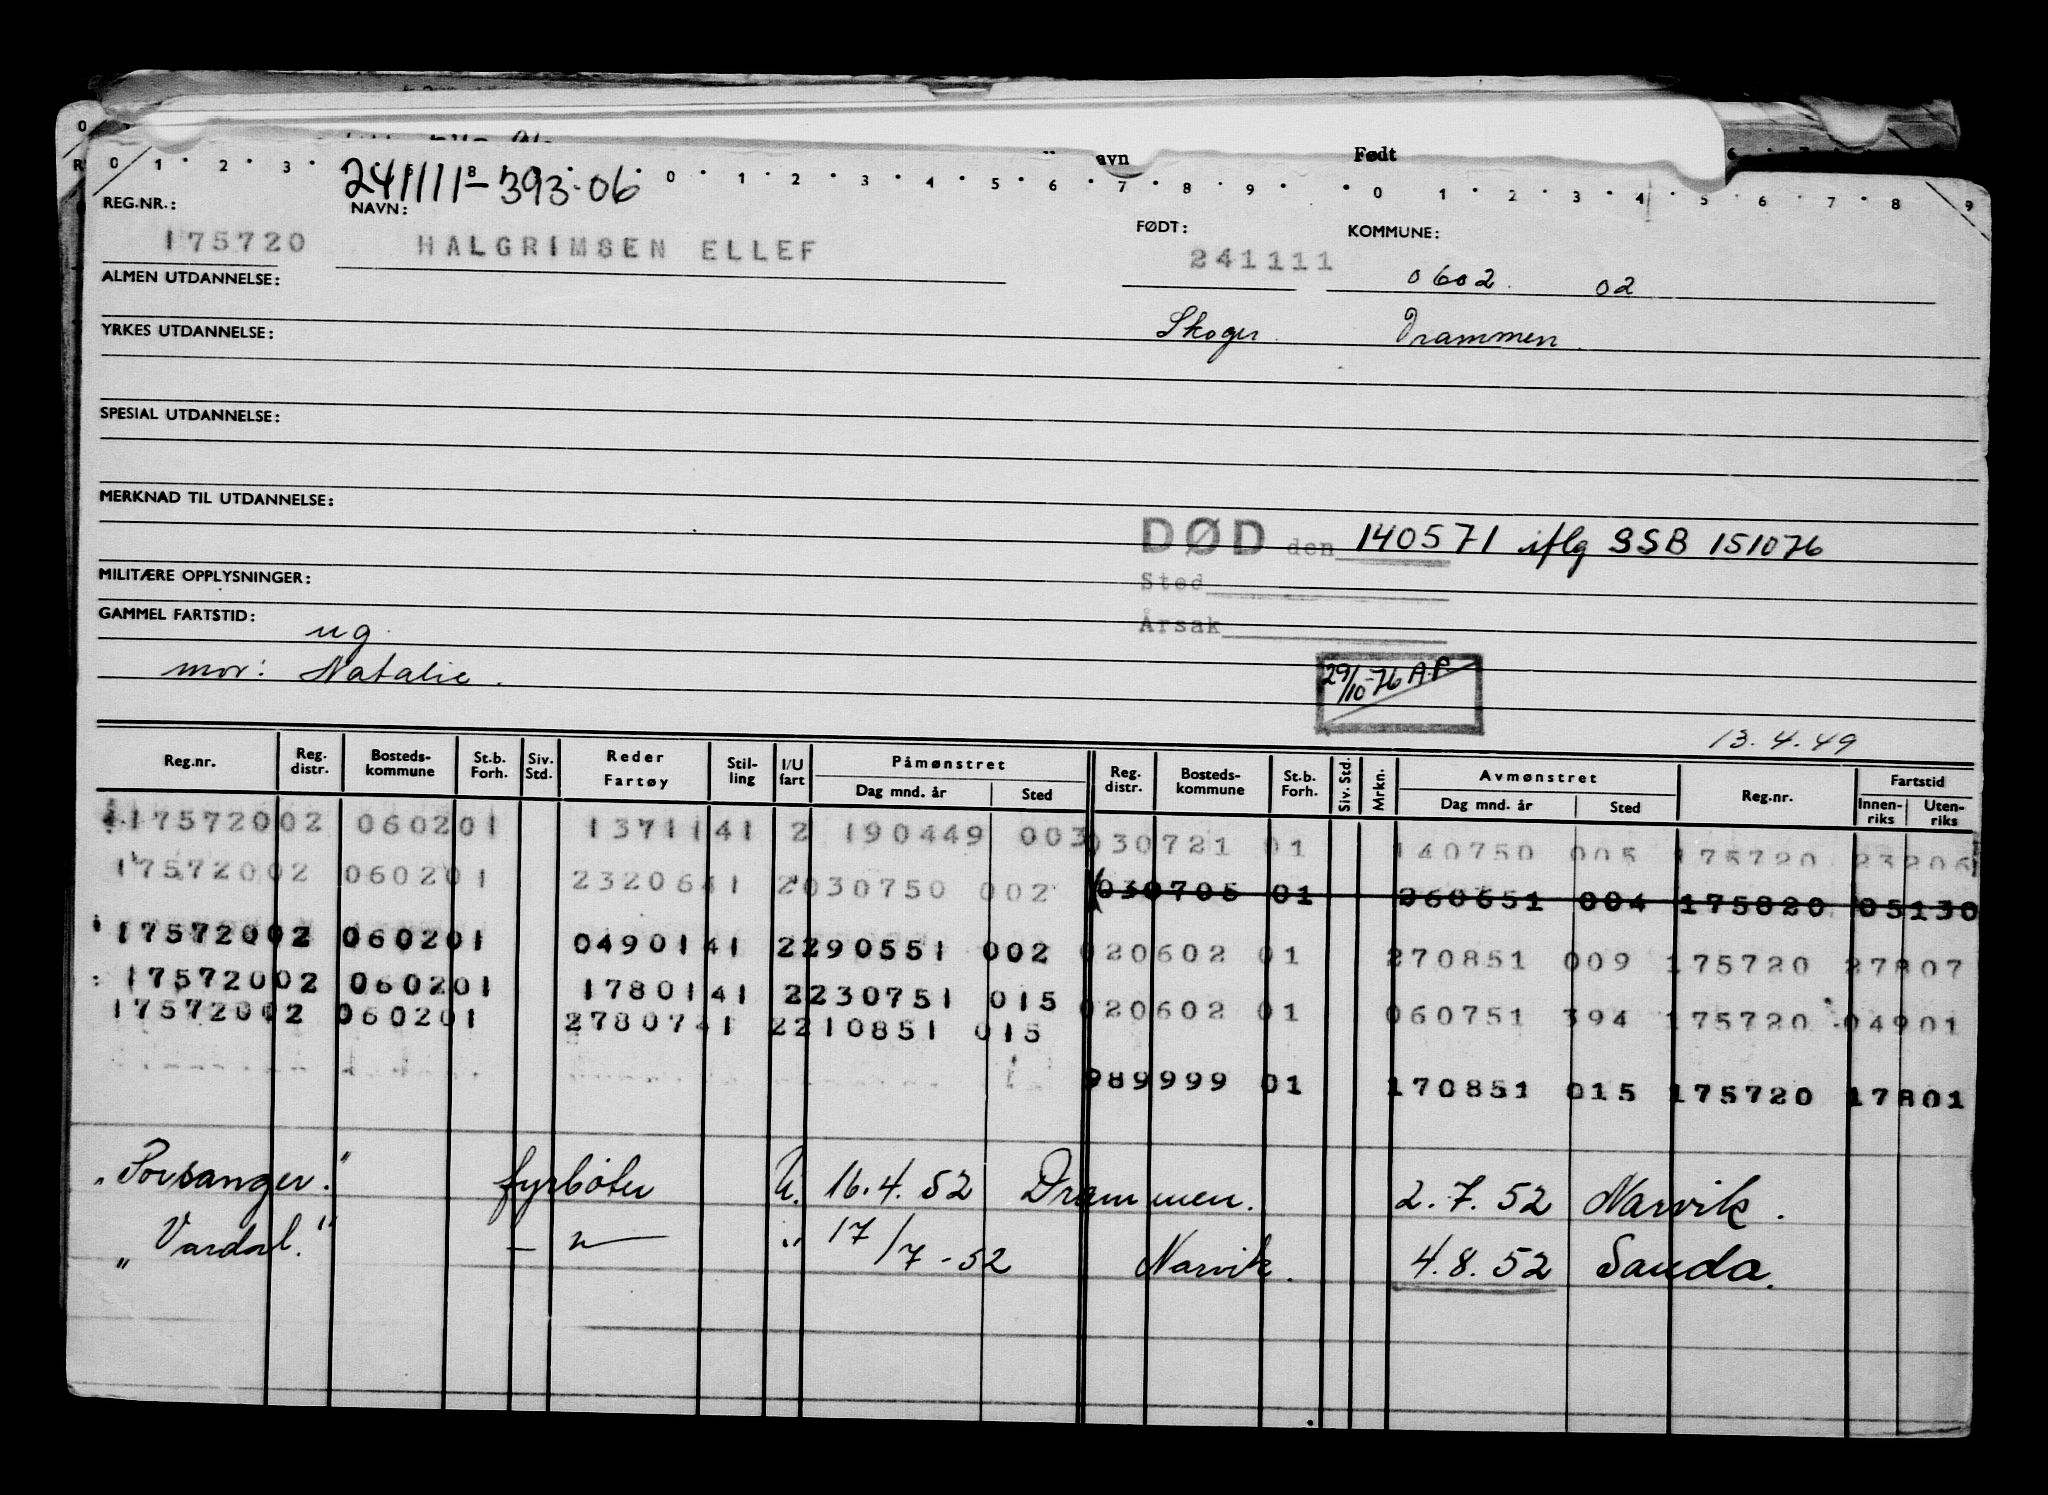 avn Født
0 1 2 3 8 0 1 2 3 4 5 6 7 8 9 0 1 2 3 4 5 6 7 8 9
241111-393-06
REG.NR.: NAVN: FØDT: KOMMUNE:
175720 HALGRIMSEN ELLEF 241111 0602. 02
ALMEN UTDANNELSE:
Skoger. Drammen.
YRKES UTDANNELSE:
SPESIAL UTDANNELSE:
MERKNAD TIL UTDANNELSE:
DØD den 140571 iflg SSB 151076
MILITÆRE OPPLYSNINGER:
Sted
GAMMEL FARTSTID:
Årsak
ug.
mor: Natalie.
29/10-76 A.P
13.4.49
Reg.nr. Reg. distr. Bosteds-kommune St.b. Forh. Siv. Std. Reder Fartøy Stil-ling I/U fart Påmønstret Dag mnd. år Sted Reg. distr. Bosteds-kommune St.b. Forh. Siv. Std. Mrkn. Avmønstret Dag mnd. år Sted Reg.nr. Fartstid Innen-riks Uten-riks
17572002 060201 1371141 2 190449 003 030721 01 140750 005 175720 23206
17572002 060201 2320641 2030750 002 030705 01 260651 004 175820 05130
17572002 060201 0490141 2290551 002 020602 01 270851 009 175720 27807
17572002 060201 1780141 2230751 015 020602 01 060751 394 175720 04901
17572002 060201 2780741 2210851 015
989999 01 170851 015 175720 17801
„Porsanger." fyrbøter U. 16.4.52 Drammen. 2.7.52 Narvik.
„Vardal." — " — " 17/7-52 Narvik. 4.8.52 Sauda.